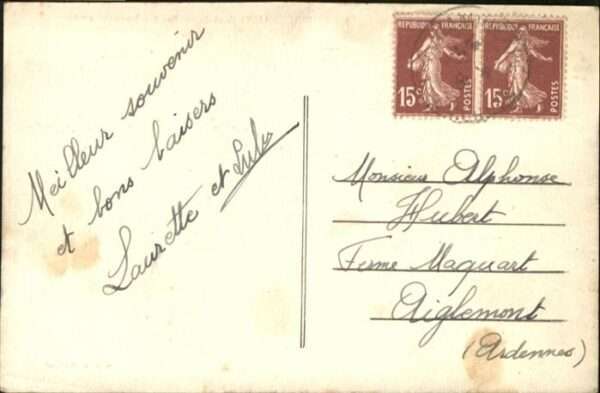 Meilleur souvenir
et bons baisers
Laurette et Lulu
REPUBLIQUE FRANÇAISE
15c
POSTES
REPUBLIQUE FRANÇAISE
15c
POSTES
Monsieur Alphonse
Hubert
Ferme Maquart
Aiglemont
(Ardennes)